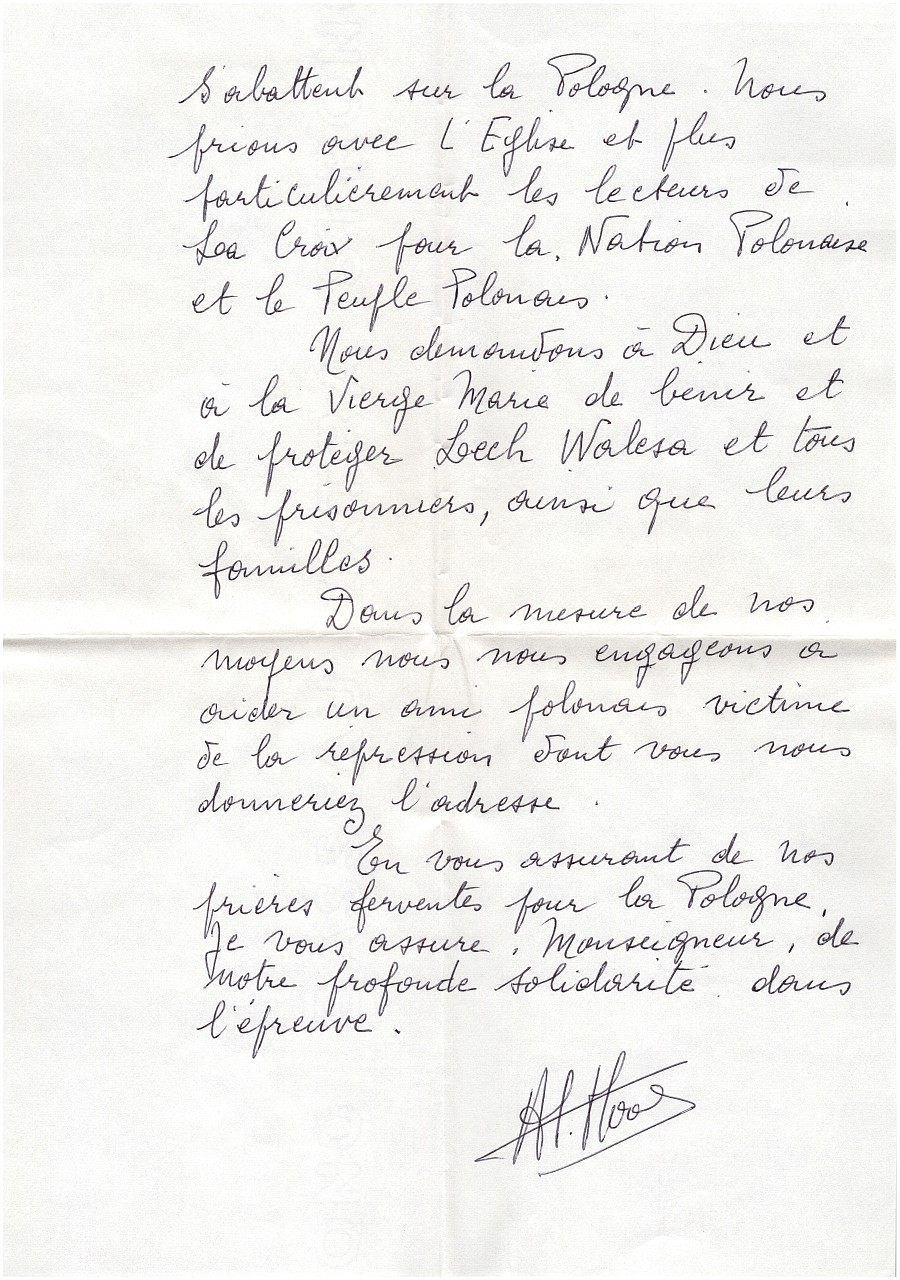 s'abattent sur la Pologne. Nous
prions avec l'Eglise et plus
particulièrement les lecteurs de
La Croix pour la Nation Polonaise
et le Peuple Polonais.
Nous demandons à Dieu et
à la Vierge Marie de bénir et
de protéger Lech Walesa et tous
les prisonniers, ainsi que leurs
familles.
Dans la mesure de nos
moyens nous nous engageons a
aider un ami polonais victime
de la répression dont vous nous
donneriez l'adresse.
En vous assurant de nos
prières ferventes pour la Pologne,
Je vous assure, Monseigneur, de
notre profonde solidarité dans
l'épreuve.